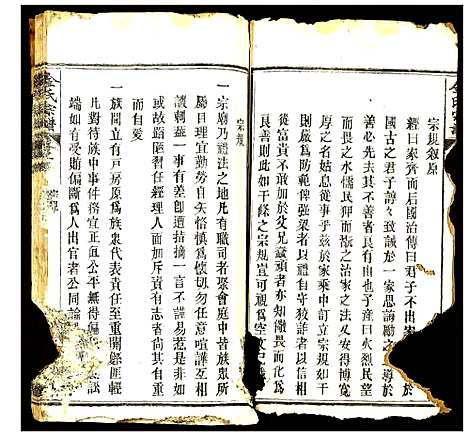 宗規叙原
經曰家齊而后國治傳曰君子不出家
國古之君子謂欲致誠於一家思誦勵之
善心先去其不善者良有由也子產曰火烈民望
之水懦民狎而翫之治家之法又安得博寬
厚之名姑息從事乎玆於家乘中訂立宗規如干
則嚴爲防範俾強梁者以禮自守狡詐者以信相
從富貴不敢加於父兄羸頑者亦知儆畏而汇爲
良善焉此如干條之宗規豈可視爲空文
宗規
一宗廟乃禮法之地凡有職司者聚會庭中皆族眾所
屬目理宜勤勞自矢恪慎爲懷切勿任意喧譁互相
譏刺雖一事有差卽遭指摘一言不謹易惹是非
或故蹈陋習任經理人面加斥責有志者尚其有重
而自愛
一族間立有戸房原爲族衆代表責任至重閱歷匪輕
凡對待族中事務宜正直公平紙得偏
端如有受賄偏斷爲人出官者公同論